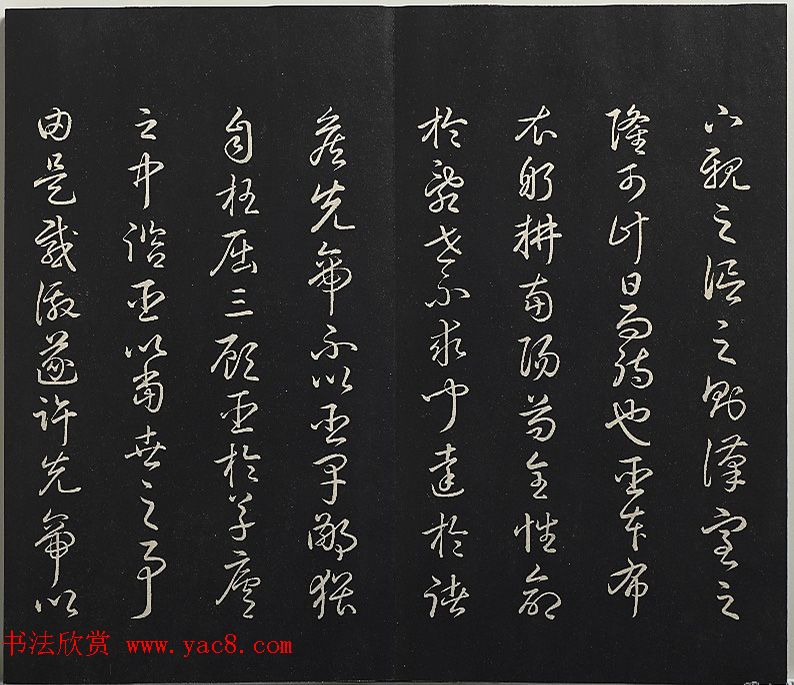 下親之信之則漢室之
隆可計日而待也臣本布
衣躬耕南陽苟全性命
於亂世不求聞達於諸
侯先帝不以臣卑鄙猥
自枉屈三顧臣於草廬
之中諮臣以當世之事
由是感激遂許先帝以
书法欣赏 www.yac8.com